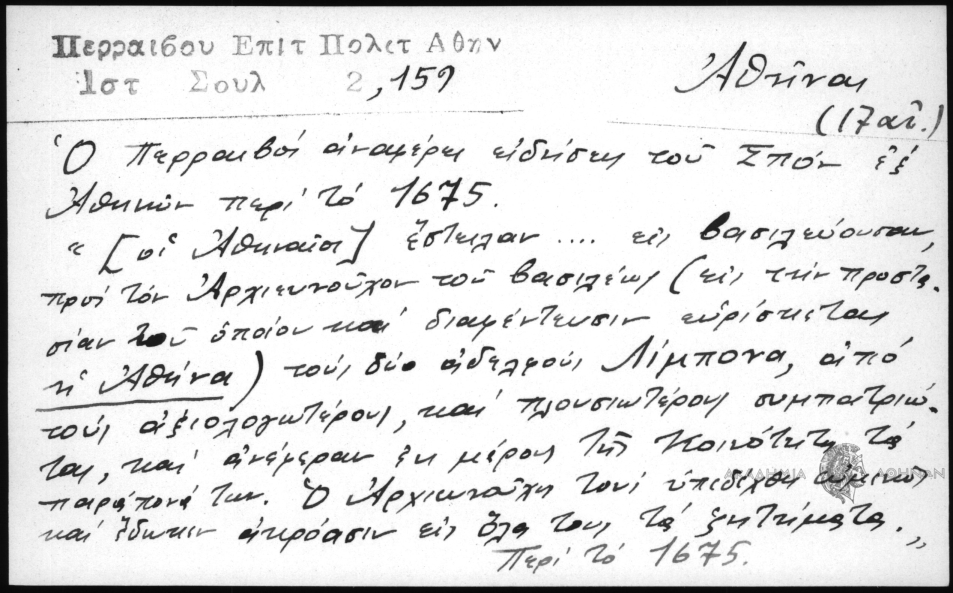 Περραιβου Επιτ Πολετ Αθην
Ιστ Σουλ 2,159
Ἀθῆναι
(17 αἰ.)
Ὁ Περραιβός ἀναφέρει εἰδήσεις τοῦ Σπόν ἐξ
Ἀθηνῶν περί τό 1675.
"[οἱ Ἀθηναῖοι] ἔστειλαν .... εἰς βασιλεύουσαν,
πρός τόν Ἀρχιευνοῦχον τοῦ βασιλέως (εἰς τήν προστα-
σίαν τοῦ ὁποίου καί διαφέντευσιν εὑρίσκεται
ἡ Ἀθήνα) τούς δύο ἀδελφούς Λίμπονα, ἀπό
τούς ἀξιολογωτέρους, καί πλουσιωτέρους συμπατριώ-
τας, καί ἀνέφεραν ἐκ μέρους τῆς Κοινότητος τά
παράπονά των. Ὁ Ἀρχιευνοῦχος τούς ὑπεδέχθη εὐμενῶς
καί ἔδωκεν ἀκρόασιν εἰς ὅλα τους τά ζητήματα."
Περί τό 1675.
ΑΚΑΔΗΜΙΑ ΑΘΗΝΩΝ